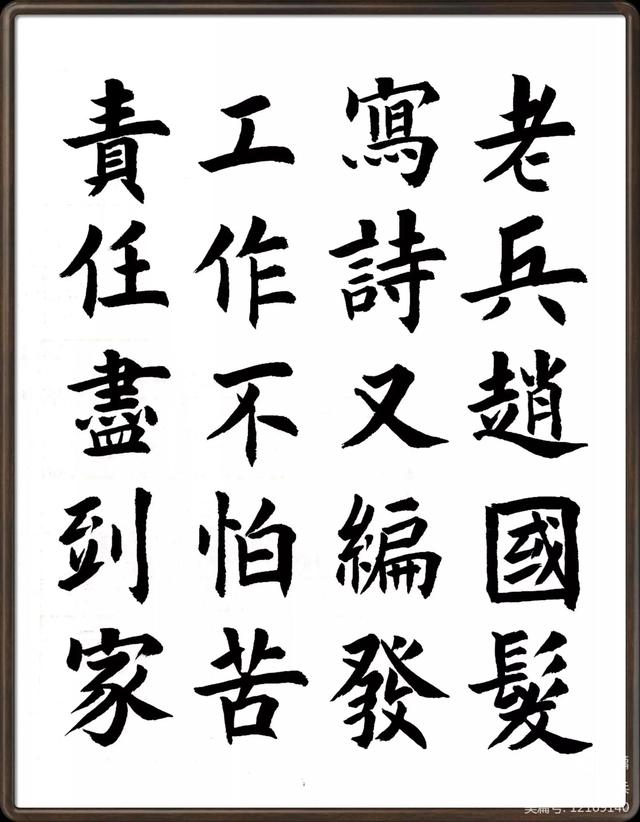 老兵趙國髮
寫詩又編發
工作不怕苦
責任盡到家
12169140